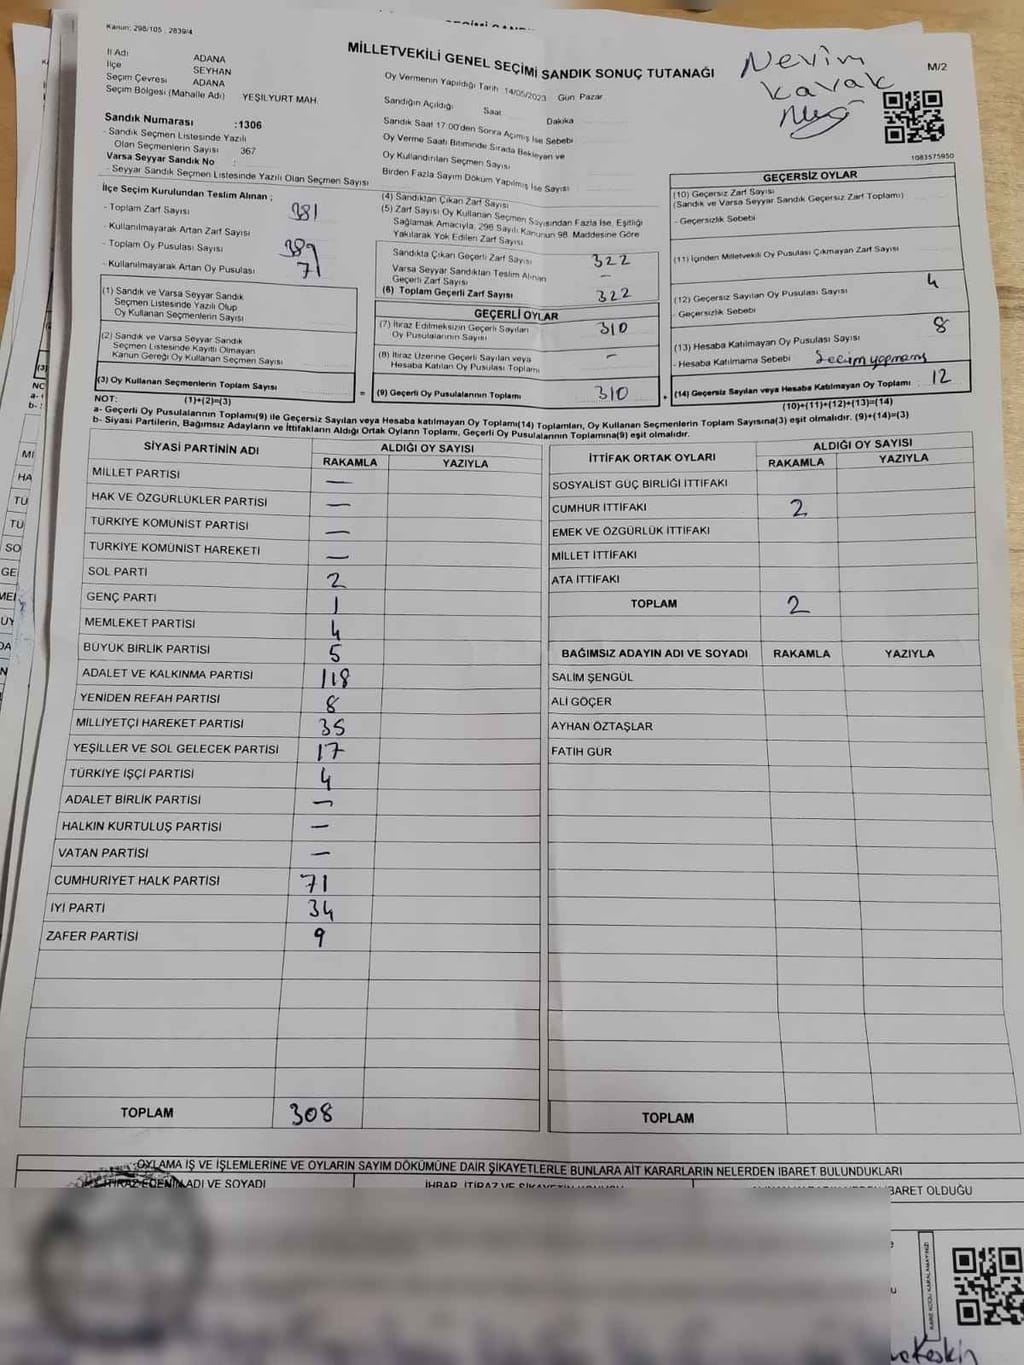 Kanun: 298/105 , 2839/4
MİLLETVEKİLİ GENEL SEÇİMİ SANDIK SONUÇ TUTANAĞI
Nevim
Kavak
M/2
İl Adı ADANA
İlçe SEYHAN
Seçim Çevresi ADANA
Seçim Bölgesi (Mahalle Adı) YEŞİLYURT MAH.
Sandık Numarası :1306
- Sandık Seçmen Listesinde Yazılı
Olan Seçmenlerin Sayısı 367
Varsa Seyyar Sandık No :
- Seyyar Sandık Seçmen Listesinde Yazılı Olan Seçmen Sayısı
Oy Vermenin Yapıldığı Tarih 14/05/2023 Gün: Pazar
Sandığın Açıldığı Saat Dakika
Sandık Saat 17:00'den Sonra Açılmış İse Sebebi
Oy Verme Saati Bitiminde Sırada Bekleyen ve
Oy Kullandırılan Seçmen Sayısı
Birden Fazla Sayım Döküm Yapılmış İse Sayısı
1083575950
İlçe Seçim Kurulundan Teslim Alınan ;
- Toplam Zarf Sayısı 381
- Kullanılmayarak Artan Zarf Sayısı
- Toplam Oy Pusulası Sayısı 389
- Kullanılmayarak Artan Oy Pusulası 71
(1) Sandık ve Varsa Seyyar Sandık
Seçmen Listesinde Yazılı Olup
Oy Kullanan Seçmenlerin Sayısı
(2) Sandık ve Varsa Seyyar Sandık
Seçmen Listesinde Kayıtlı Olmayan
Kanun Gereği Oy Kullanan Seçmen Sayısı
(3) Oy Kullanan Seçmenlerin Toplam Sayısı
(4) Sandıktan Çıkan Zarf Sayısı
(5) Zarf Sayısı Oy Kullanan Seçmen Sayısından Fazla İse, Eşitliği
Sağlamak Amacıyla, 298 Sayılı Kanunun 98. Maddesine Göre
Yakılarak Yok Edilen Zarf Sayısı
Sandıkta Çıkan Geçerli Zarf Sayısı 322
Varsa Seyyar Sandıktan Teslim Alınan
Geçerli Zarf Sayısı –
(6) Toplam Geçerli Zarf Sayısı 322
GEÇERLİ OYLAR
(7) İtiraz Edilmeksizin Geçerli Sayılan
Oy Pusulalarının Sayısı 310
(8) İtiraz Üzerine Geçerli Sayılan veya
Hesaba Katılan Oy Pusulası Toplamı –
= (9) Geçerli Oy Pusulalarının Toplamı 310
GEÇERSİZ OYLAR
(10) Geçersiz Zarf Sayısı
(Sandık ve Varsa Seyyar Sandık Geçersiz Zarf Toplamı)
- Geçersizlik Sebebi
(11) İçinden Milletvekili Oy Pusulası Çıkmayan Zarf Sayısı
4
(12) Geçersiz Sayılan Oy Pusulası Sayısı
- Geçersizlik Sebebi
8
(13) Hesaba Katılmayan Oy Pusulası Sayısı
- Hesaba Katılmama Sebebi Seçim yapmamış
+ (14) Geçersiz Sayılan veya Hesaba Katılmayan Oy Toplamı 12
NOT: (1)+(2)=(3)
(10)+(11)+(12)+(13)=(14)
a- Geçerli Oy Pusulalarının Toplamı(9) ile Geçersiz Sayılan veya Hesaba katılmayan Oy Toplamı(14) Toplamları, Oy Kullanan Seçmenlerin Toplam Sayısına(3) eşit olmalıdır. (9)+(14)=(3)
b- Siyasi Partilerin, Bağımsız Adayların ve İttifakların Aldığı Ortak Oyların Toplamı, Geçerli Oy Pusulalarının Toplamına(9) eşit olmalıdır.
SİYASİ PARTİNİN ADI ALDIĞI OY SAYISI
RAKAMLA YAZIYLA
MİLLET PARTİSİ –
HAK VE ÖZGÜRLÜKLER PARTİSİ –
TÜRKİYE KOMÜNİST PARTİSİ –
TÜRKİYE KOMÜNİST HAREKETİ –
SOL PARTİ 2
GENÇ PARTİ 1
MEMLEKET PARTİSİ 4
BÜYÜK BİRLİK PARTİSİ 5
ADALET VE KALKINMA PARTİSİ 118
YENİDEN REFAH PARTİSİ 8
MİLLİYETÇİ HAREKET PARTİSİ 35
YEŞİLLER VE SOL GELECEK PARTİSİ 17
TÜRKİYE İŞÇİ PARTİSİ 4
ADALET BİRLİK PARTİSİ –
HALKIN KURTULUŞ PARTİSİ –
VATAN PARTİSİ –
CUMHURİYET HALK PARTİSİ 71
İYİ PARTİ 34
ZAFER PARTİSİ 9
TOPLAM 308
İTTİFAK ORTAK OYLARI ALDIĞI OY SAYISI
RAKAMLA YAZIYLA
SOSYALİST GÜÇ BİRLİĞİ İTTİFAKI
CUMHUR İTTİFAKI 2
EMEK VE ÖZGÜRLÜK İTTİFAKI
MİLLET İTTİFAKI
ATA İTTİFAKI
TOPLAM 2
BAĞIMSIZ ADAYIN ADI VE SOYADI RAKAMLA YAZIYLA
SALİM ŞENGÜL
ALİ GÖÇER
AYHAN ÖZTAŞLAR
FATİH GÜR
TOPLAM
OYLAMA İŞ VE İŞLEMLERİNE VE OYLARIN SAYIM DÖKÜMÜNE DAİR ŞİKAYETLERLE BUNLARA AİT KARARLARIN NELERDEN İBARET BULUNDUKLARI
İTİRAZ EDENİN ADI VE SOYADI
İHBAR, İTİRAZ VE ŞİKAYETİN KONUSU
İBARET OLDUĞU